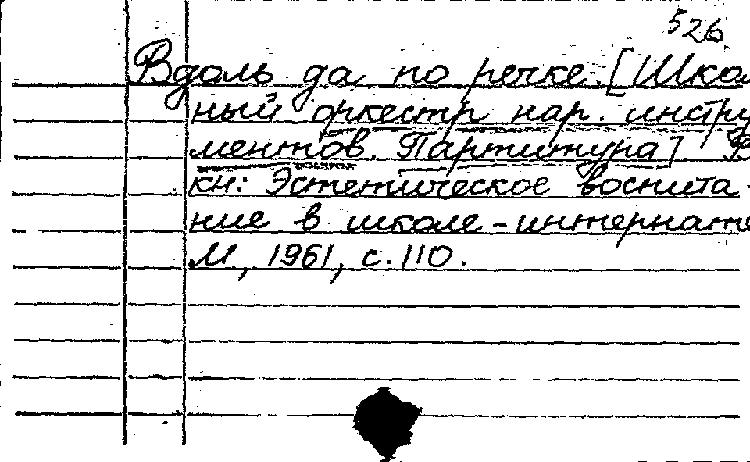 526
Вдоль да по речке. [Шко
ный оркестр нар. инстру
ментов. Партитура]
кн: Эстетическое воспита
ние в школе-интернате
М, 1961, с. 110.